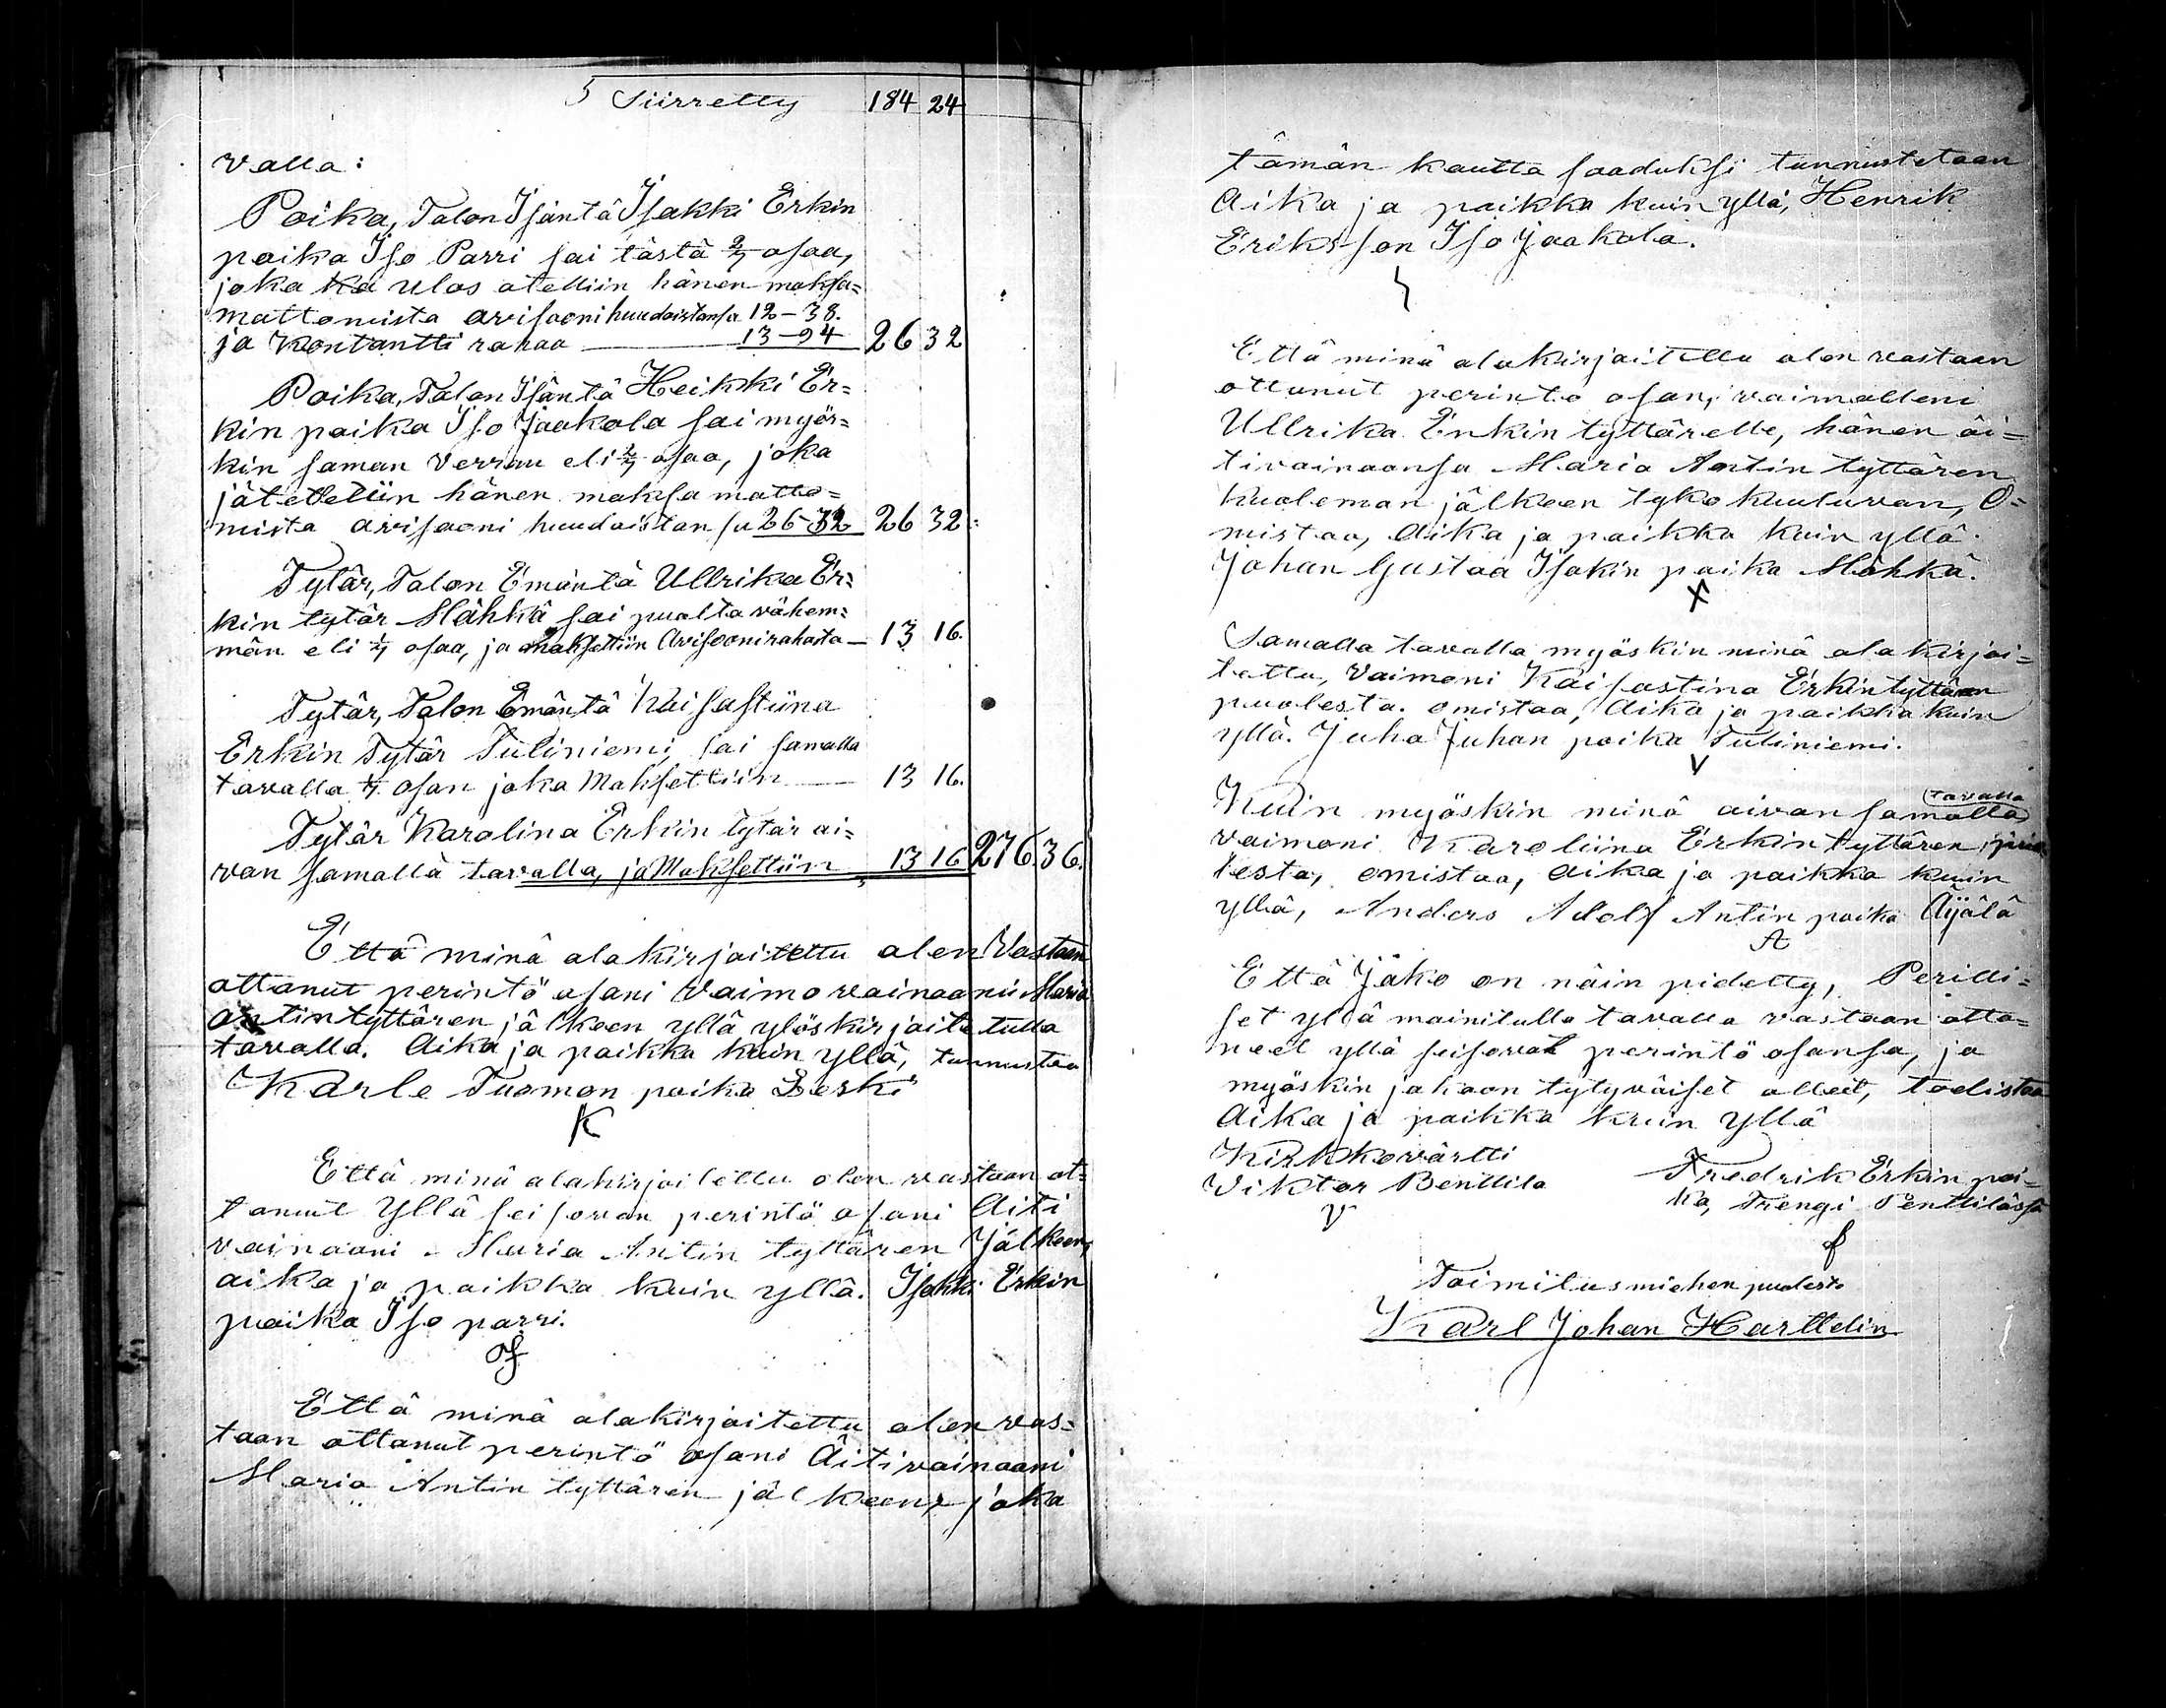 5 Siirretty 184 24
valla:
Poika, Talon Isäntä Isakki Erkin
poika Iso Parri sai tästä 2/7 osaa,
joka ka ulos otettiin hänen maksa=
mattomista avisooni huudoistansa 12-38.
ja Kontantti rahaa — 13-94 26 32
Poika, Talon Isäntä Heikki Er=
kin poika Iso Jaakola sai myös=
kin saman verran eli 2/7 osaa, joka
jätettiin hänen maksamatto=
mista avisooni huudoistansa 26-32 26 32
Tytär, Talon Emäntä Ullrika Er=
kin tytär Mähkä sai puolta vähem=
män eli 1/7 osaa, ja maksettiin Avisoonirahasta — 13 16.
Tytär, Talon Emäntä Kaisastiina
Erkin Tytär Tuliniemi, sai samalla
tavalla 1/7 osan joka Maksettiin — 13 16.
Tytär Karolina Erkin tytär ai=
van samalla tavalla, ja Maksettiin 13 16 276 36.
Että minä alakirjoitettu olen Vastaan
ottanut perintö osani Vaimo vainaani Maria
Antintyttären jälkeen yllä ylöskirjoitetulla
tavalla. Aika ja paikka kuin yllä, tunnustaa
Karle Tuomon poika Leski
K
Että minä alakirjoitettu olen vastaan ot=
tanut Yllä seisovan perintö osani Äiti
vainaani Maria Antin tyttären Jälkeen,
aika ja paikka kuin yllä. Isakki Erkin
poika Iso parri.
Että minä alakirjoitettu olen vas=
taan ottanut perintö osani Äiti vainaani
Maria Antin tyttären jälkeen, joka
tämän kautta saaduksi tunnustetaan
Aika ja paikka kuin yllä, Henrik
Eriksson Iso Jaakola.
Että minä alakirjoitettu olen vastaan
ottanut perinto osan, vaimolleni
Ullrika Erkin tyttärelle, hänen äi=
tivainaansa Maria Antin tyttären
kuoleman jälkeen tyko kuuluvan, O=
mistaa, Aika ja paikka kuin yllä.
Johan Gustaa Isakin poika Mähkä.
X
Samalla tavalla myöskin minä alakirjoi=
tettu, Vaimoni Kaisastina Erkintyttären
puolesta. omistaa, Aika ja paikka kuin
yllä. Juha Juhan poika Tuliniemi.
V
Kuin myöskin minä aivan samalla tavalla
vaimoni Karoliina Erkintyttären puo
lesta, omistaa, Aika ja paikka kuin
yllä, Anders Adolf Antin poika Äijälä
A
Että Jako on näin pidetty, Perilli=
set yllä mainitulla tavalla vastaan otta=
neet yllä seisovat perintö osansa, ja
myöskin jakoon tytyväiset olleet, todistaa
Aika ja paikka kuin Yllä
Kirkkovärtti
Viktor Benttila
V
Fredrik Erkin poi=
ka, Trengi Penttilässä
f
Toimitusmiehen puolesta
Karl Johan Harttelin